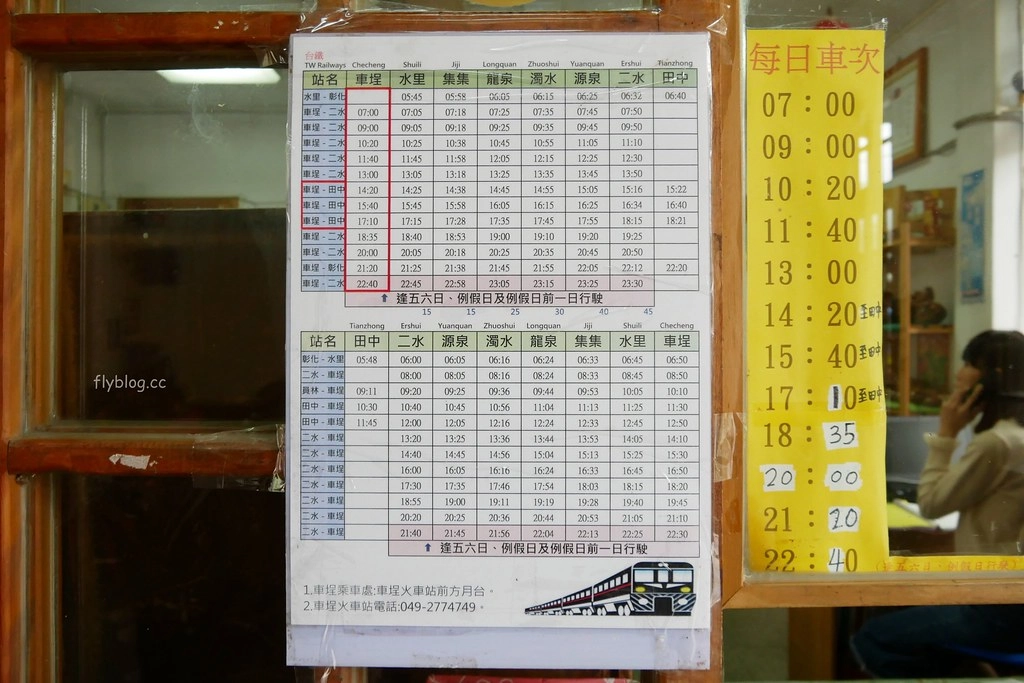 台鐵
TW Railways Checheng Shuili Jiji Longquan Zhuoshui Yuanquan Ershui Tianzhong
站名 車埕 水里 集集 龍泉 濁水 源泉 二水 田中
水里 - 彰化 05:45 05:58 06:05 06:15 06:25 06:32 06:40
車埕 - 二水 07:00 07:05 07:18 07:25 07:35 07:45 07:50
車埕 - 二水 09:00 09:05 09:18 09:25 09:35 09:45 09:50
車埕 - 二水 10:20 10:25 10:38 10:45 10:55 11:05 11:10
車埕 - 二水 11:40 11:45 11:58 12:05 12:15 12:25 12:30
車埕 - 二水 13:00 13:05 13:18 13:25 13:35 13:45 13:50
車埕 - 田中 14:20 14:25 14:38 14:45 14:55 15:05 15:16 15:22
車埕 - 田中 15:40 15:45 15:58 16:05 16:15 16:25 16:34 16:40
車埕 - 田中 17:10 17:15 17:28 17:35 17:45 17:55 18:15 18:21
車埕 - 二水 18:35 18:40 18:53 19:00 19:10 19:20 19:25
車埕 - 二水 20:00 20:05 20:18 20:25 20:35 20:45 20:50
車埕 - 彰化 21:20 21:25 21:38 21:45 21:55 22:05 22:12 22:20
車埕 - 二水 22:40 22:45 22:58 23:05 23:15 23:25 23:30
⬆ 逢五六日、例假日及例假日前一日行駛
15 15 25 30 40 45
Tianzhong Ershui Yuanquan Zhuoshui Longquan Jiji Shuili Checheng
站名 田中 二水 源泉 濁水 龍泉 集集 水里 車埕
彰化 - 水里 05:48 06:00 06:05 06:16 06:24 06:33 06:45 06:50
二水 - 車埕 08:00 08:05 08:16 08:24 08:33 08:45 08:50
員林 - 車埕 09:11 09:20 09:25 09:36 09:44 09:53 10:05 10:10
田中 - 車埕 10:30 10:40 10:45 10:56 11:04 11:13 11:25 11:30
田中 - 車埕 11:45 12:00 12:05 12:16 12:24 12:33 12:45 12:50
二水 - 車埕 13:20 13:25 13:36 13:44 13:53 14:05 14:10
二水 - 車埕 14:40 14:45 14:56 15:04 15:13 15:25 15:30
二水 - 車埕 16:00 16:05 16:16 16:24 16:33 16:45 16:50
二水 - 車埕 17:30 17:35 17:46 17:54 18:03 18:15 18:20
二水 - 車埕 18:55 19:00 19:11 19:19 19:28 19:40 19:45
二水 - 車埕 20:20 20:25 20:36 20:44 20:53 21:05 21:10
二水 - 車埕 21:40 21:45 21:56 22:04 22:13 22:25 22:30
⬆ 逢五六日、例假日及例假日前一日行駛
1.車埕乘車處:車埕火車站前方月台。
2.車埕火車站電話:049-2774749。
每日車次
07：00
09：00
10：20
11：40
13：00
14：20至田中
15：40至田中
17：10至田中
18：35
20：00
21：20
22：40
(逢五六日，例假日行駛)
flyblog.cc